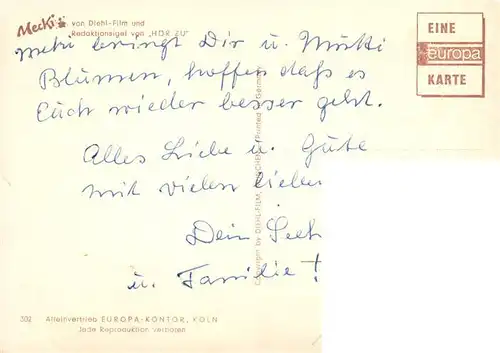 Mecki
von Diehl-Film und
Redaktionsigel von "HÖR ZU"
EINE
europa
KARTE
bringt Dir u. Mutti
Blumen, hoffen daß es
Euch wieder besser geht.
Alles Liebe u. Gute
mit vielen lieben
Dein
u. Familie!
Copyright by DIEHL-FILM, MÜNCHEN Printed Germany
302 Alleinvertrieb EUROPA-KONTOR, KÖLN
Jede Reproduktion verboten